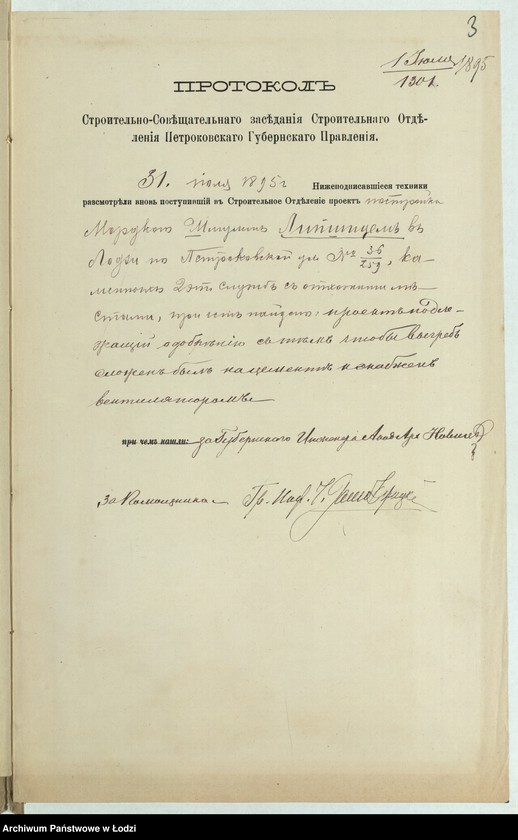 3
1 Июля 1895
1301.
ПРОТОКОЛЪ
Строительно-Совѣщательнаго засѣданія Строительнаго Отдѣ-
ленія Петроковскаго Губернскаго Правленія.
31. июля 1895 г Нижеподписавшіеся техники
разсмотрѣли вновь поступившій въ Строительное Отдѣленіе проектъ постройки
Мордкою Шмулемъ Липшицемъ въ
Лодзи по Петроковской ул № 36/259, ка-
менныхъ 2 эт службъ съ отхожими мѣ-
стами, при чемъ найдено: проектъ подле-
жащій одобренію съ тѣмъ чтобы выгребъ
сложенъ былъ на цементѣ и снабженъ
вентиляторомъ
при чемъ нашли: за Губернскаго Инженера
За Помощника Гр. Инж.
Archiwum Państwowe w Łodzi